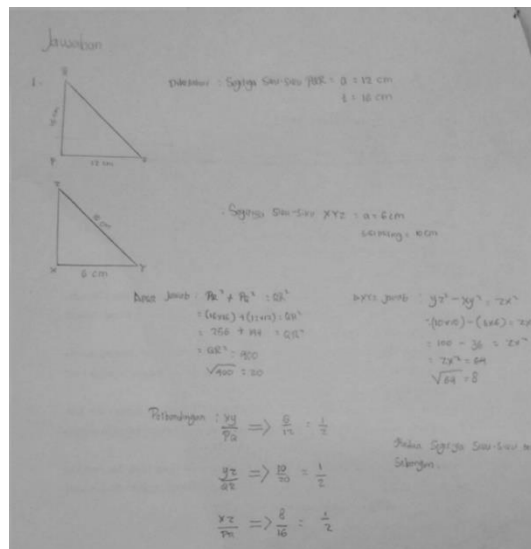 Jawaban
1.
Diketahui : Segitiga Siku-Siku PQR = a = 12 cm
t = 16 cm
12 cm
P
8 cm
X
6 cm
- Segitiga Siku-Siku XYZ = a = 6 cm
= 10 cm
Jawab : PR² + PQ² = QR²
= (16x16) + (12x12) = QR²
= 256 + 144 = QR²
= QR² = 400
√400 = 20
XYZ jawab : YZ² - XY² = ZX²
= (10x10) - (6x6) = ZX
= 100 - 36 = ZX²
= ZX² = 64
√64 = 8
Perbandingan : XY/PQ => 6/12 = 1/2
YZ/QR => 10/20 = 1/2
XZ/PR => 8/16 = 1/2
Segitiga Siku-Siku
Sebangun.